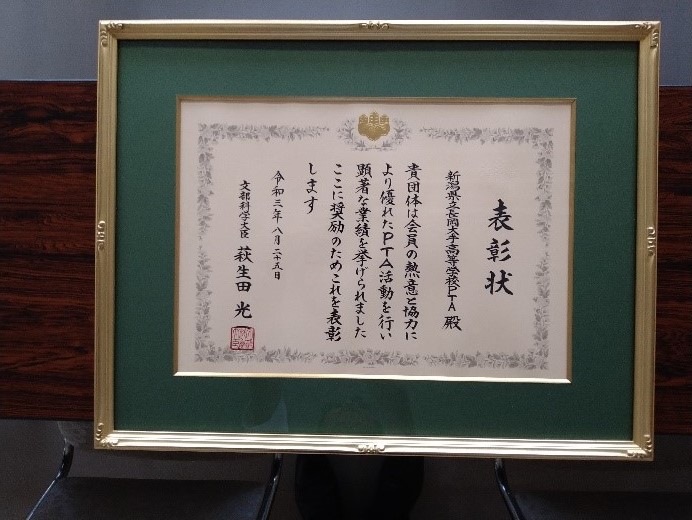 表彰状
新潟県立長岡大手高等学校PTA 殿
貴団体は会員の熱意と協力に
より優れたPTA活動を行い
顕著な業績を挙げられました
ここに奨励のためこれを表彰
します
令和三年八月二十五日
文部科学大臣 萩生田 光一